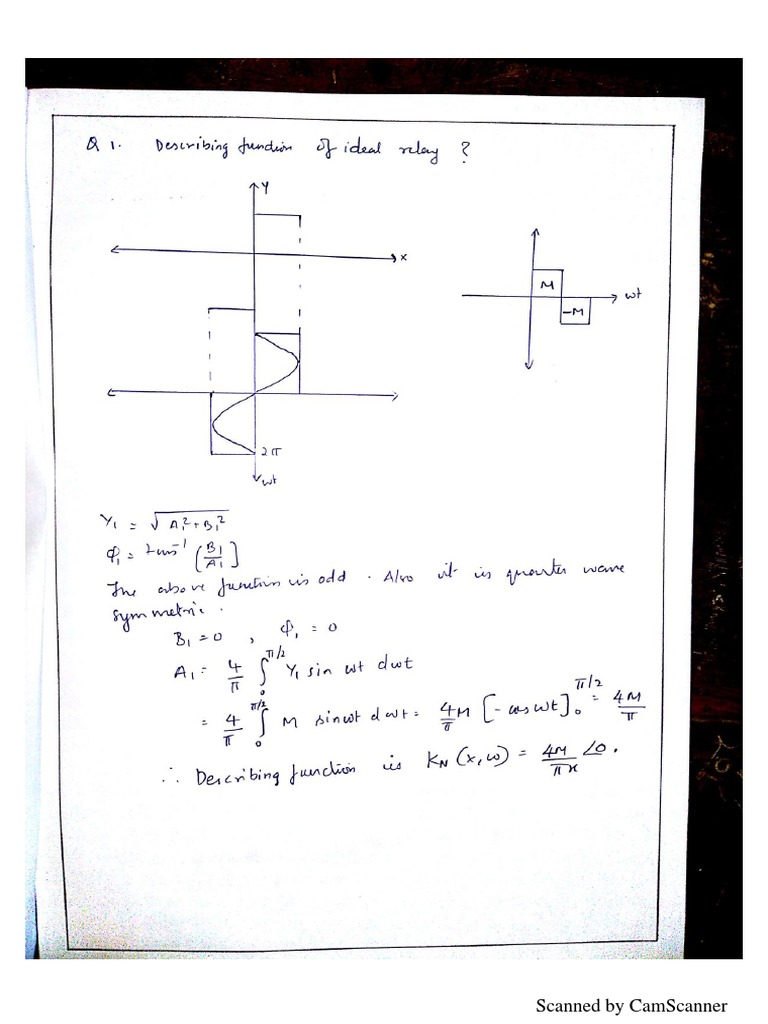 Q 1. Describing function of ideal relay ?
Y
x
M
-M
wt
2π
wt
Y₁ = √A₁²+B₁²
φ₁ = tan⁻¹ [B₁/A₁]
The above function is odd. Also it is quarter wave
symmetric.
B₁ = 0 , φ₁ = 0
A₁ = 4/π ∫₀^π/2 Y₁ sin wt dwt
= 4/π ∫₀^π/2 M sinwt dwt = 4M/π [-cos wt]₀^π/2 = 4M/π
∴ Describing function is K_N (x, ω) = 4M/πx ∠0.
Scanned by CamScanner